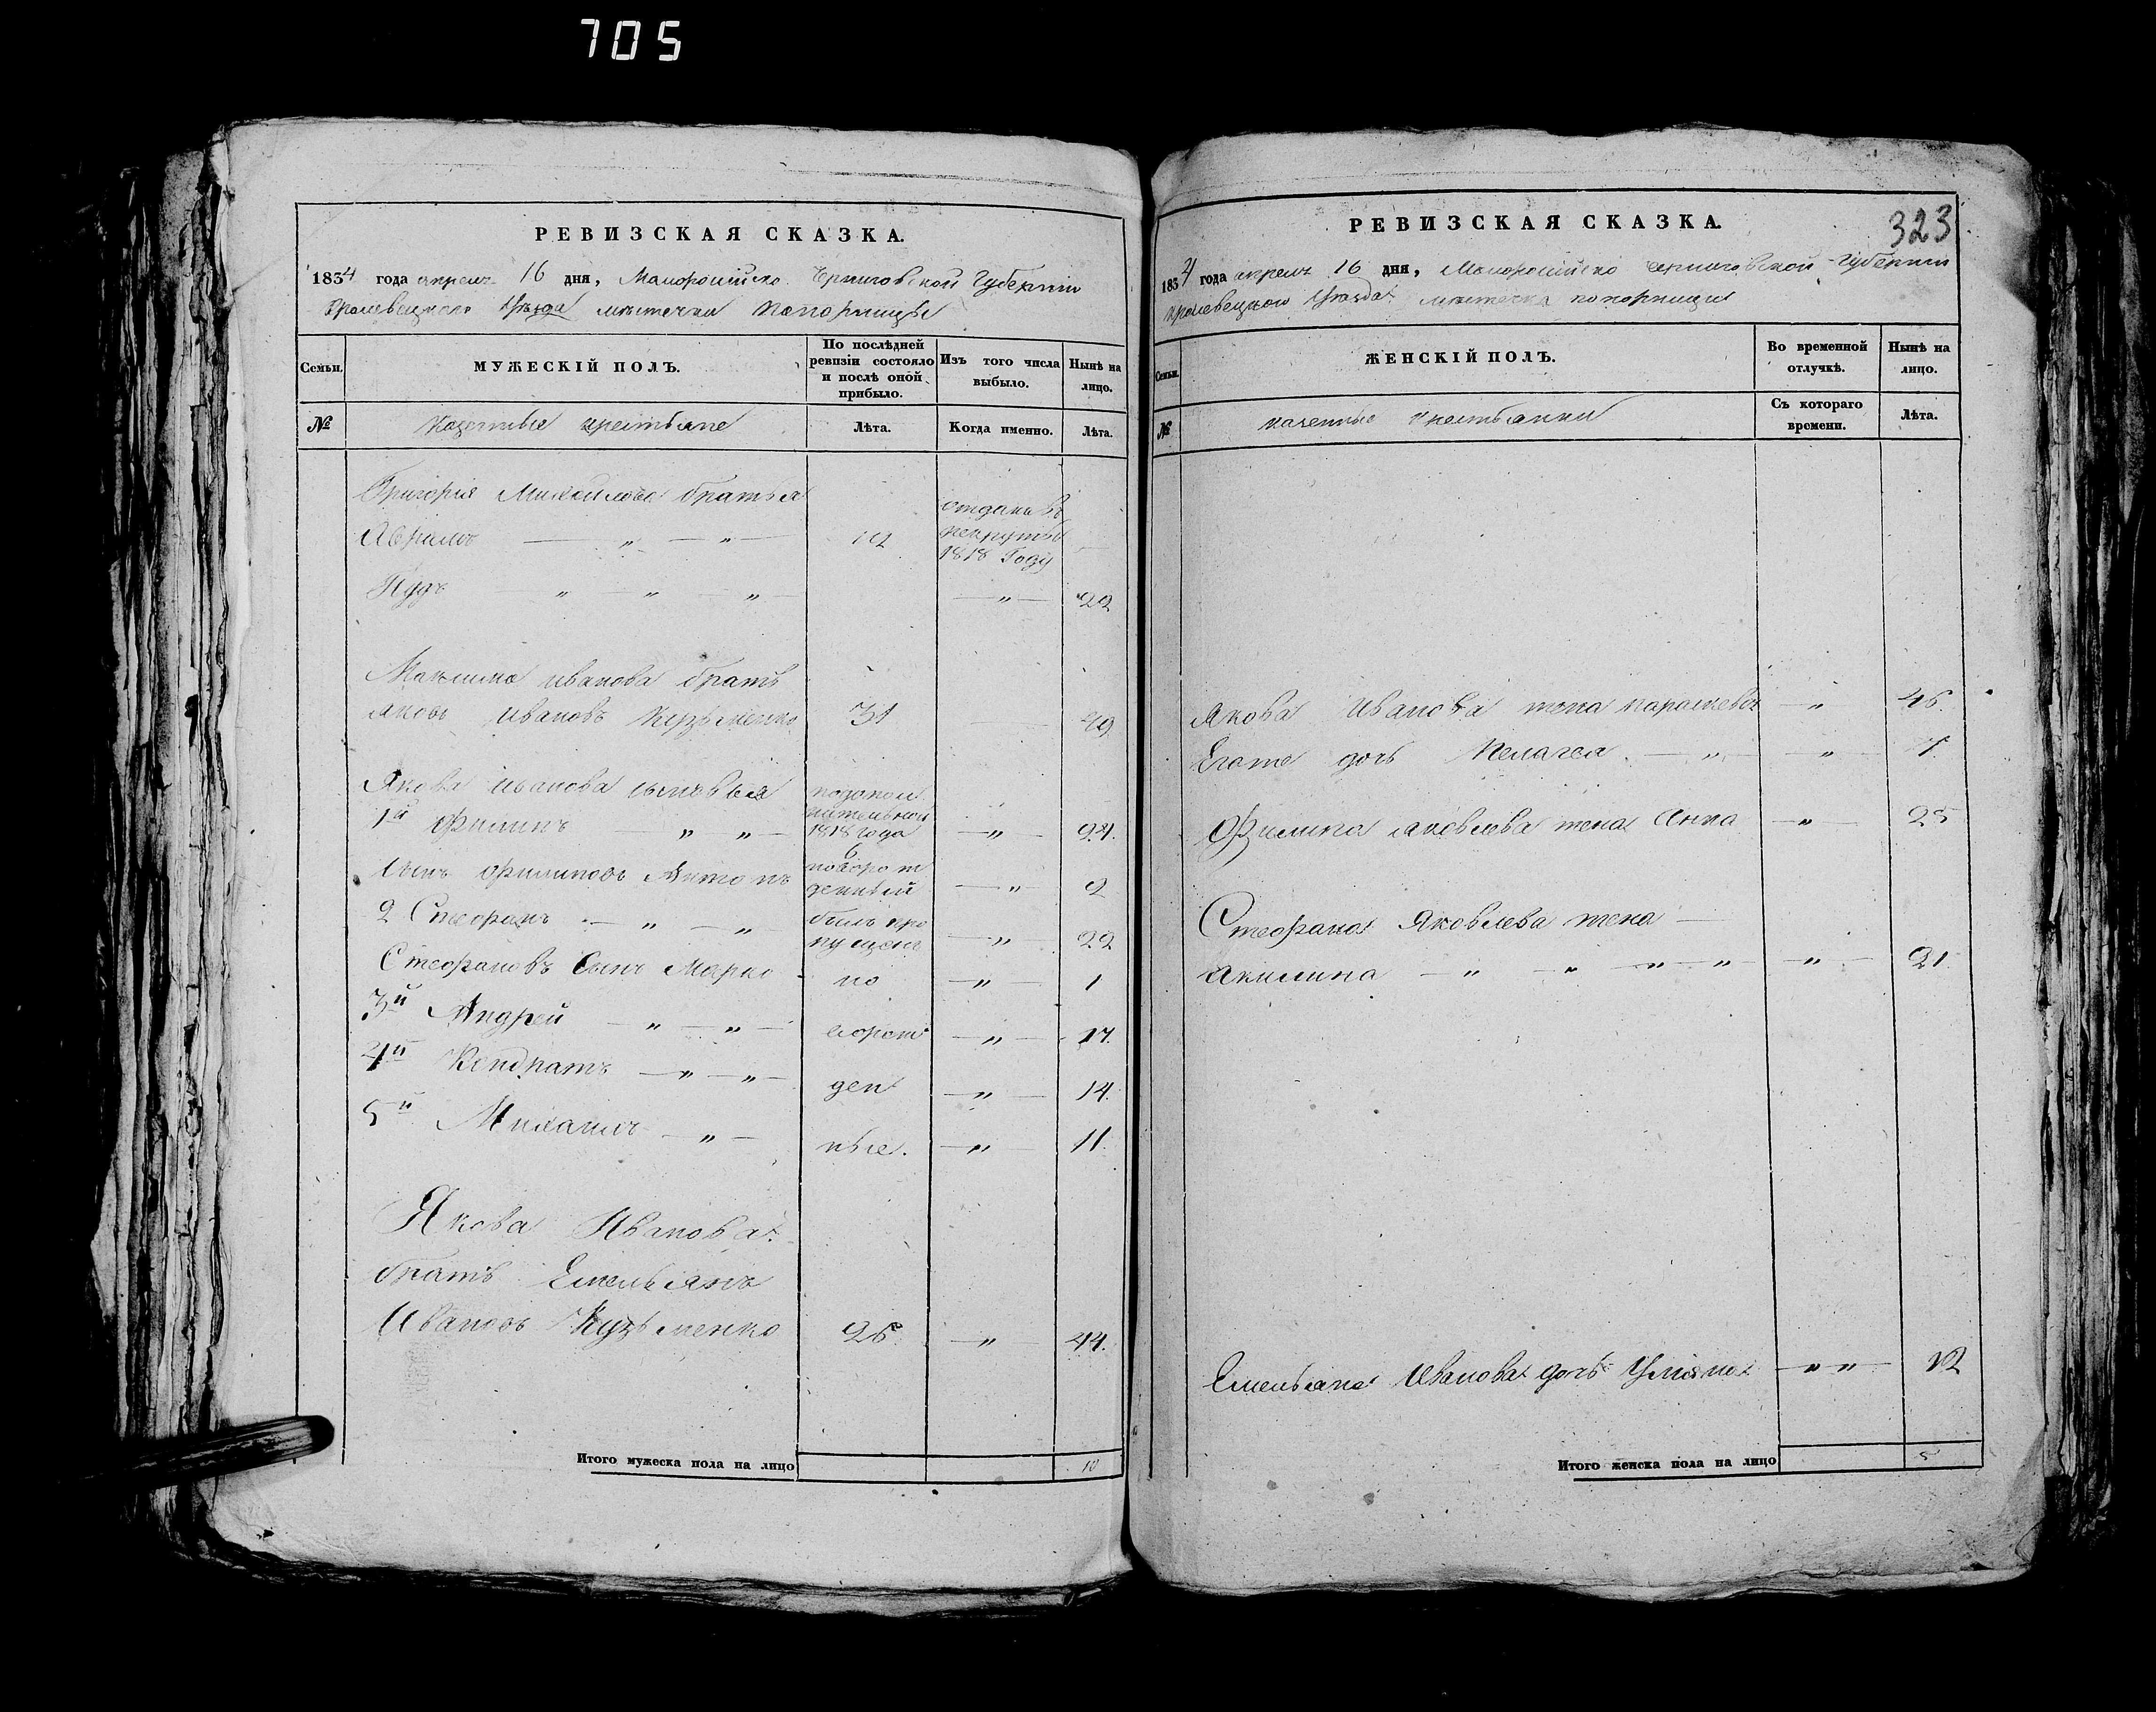 705
РЕВИЗСКАЯ СКАЗКА.
1834 года апреля 16 дня, Малоросийско Черниговской Губернии
Кролевецкого Уезда местечка Попорницы
Семьи.
МУЖЕСКІЙ ПОЛЪ.
По послѣдней ревизіи состояло и послѣ оной прибыло.
Изъ того числа выбыло.
Нынѣ на лицо.
№
Казенные крестьяне
Лѣта.
Когда именно.
Лѣта.
Григорія Михайлова братья
Аврамъ — „ — „ — 12 отданъ въ рекруты 1818 Году —
Пудъ — „ — „ — „ — — „ — 22
Максима иванова братъ
яковъ ивановъ Кузьменко 31 — 49
Якова иванова сыновья
1й Филипъ „ „ — 1818 года 6 — „ — 24.
Сынъ Филиповъ Антонъ новорожденный — „ — 2
2 Стефанъ — „ — „ былъ пропущенъ — „ — 22
Стефановъ Сынъ Марко но — „ — 1
3й Андрей — „ — „ — ворож — „ — 17.
4й Кондратъ — „ — „ — ден — „ — 14.
5й Михаилъ — „ — ные. — „ — 11.
Якова Иванова
братъ Емельянъ
Ивановъ Кузьменко 26 — „ 44.
Итого мужеска пола на лицо 10
323
РЕВИЗСКАЯ СКАЗКА.
1834 года апреля 16 дня, Малоросийско черниговской Губернии
кролевецкого Уезда местечка попорницы
Семьи.
ЖЕНСКІЙ ПОЛЪ.
Во временной отлучкѣ.
Нынѣ на лицо.
№
казенные крестьянки
Съ котораго времени.
Лѣта.
Якова Иванова жена парасковья — „ 46.
Егоже дочь Пелагея — „ — „ — 7.
Филипа яковлева жена Анна — „ — 25
Стефана Яковлева жена —
Акилина — „ — „ — „ — „ — „ — 21.
Емельяна Иванова дочь Улияна — „ „ — 12
Итого женска пола на лицо 5